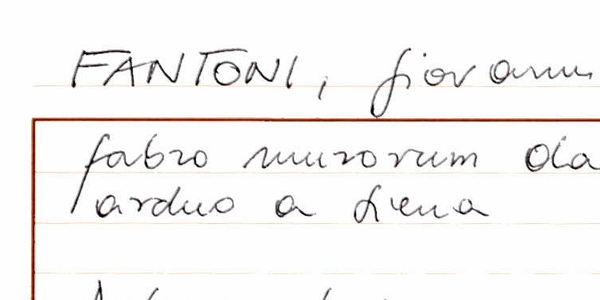 FANTONI, Giovanni
fabro murorum da
arduo a Siena